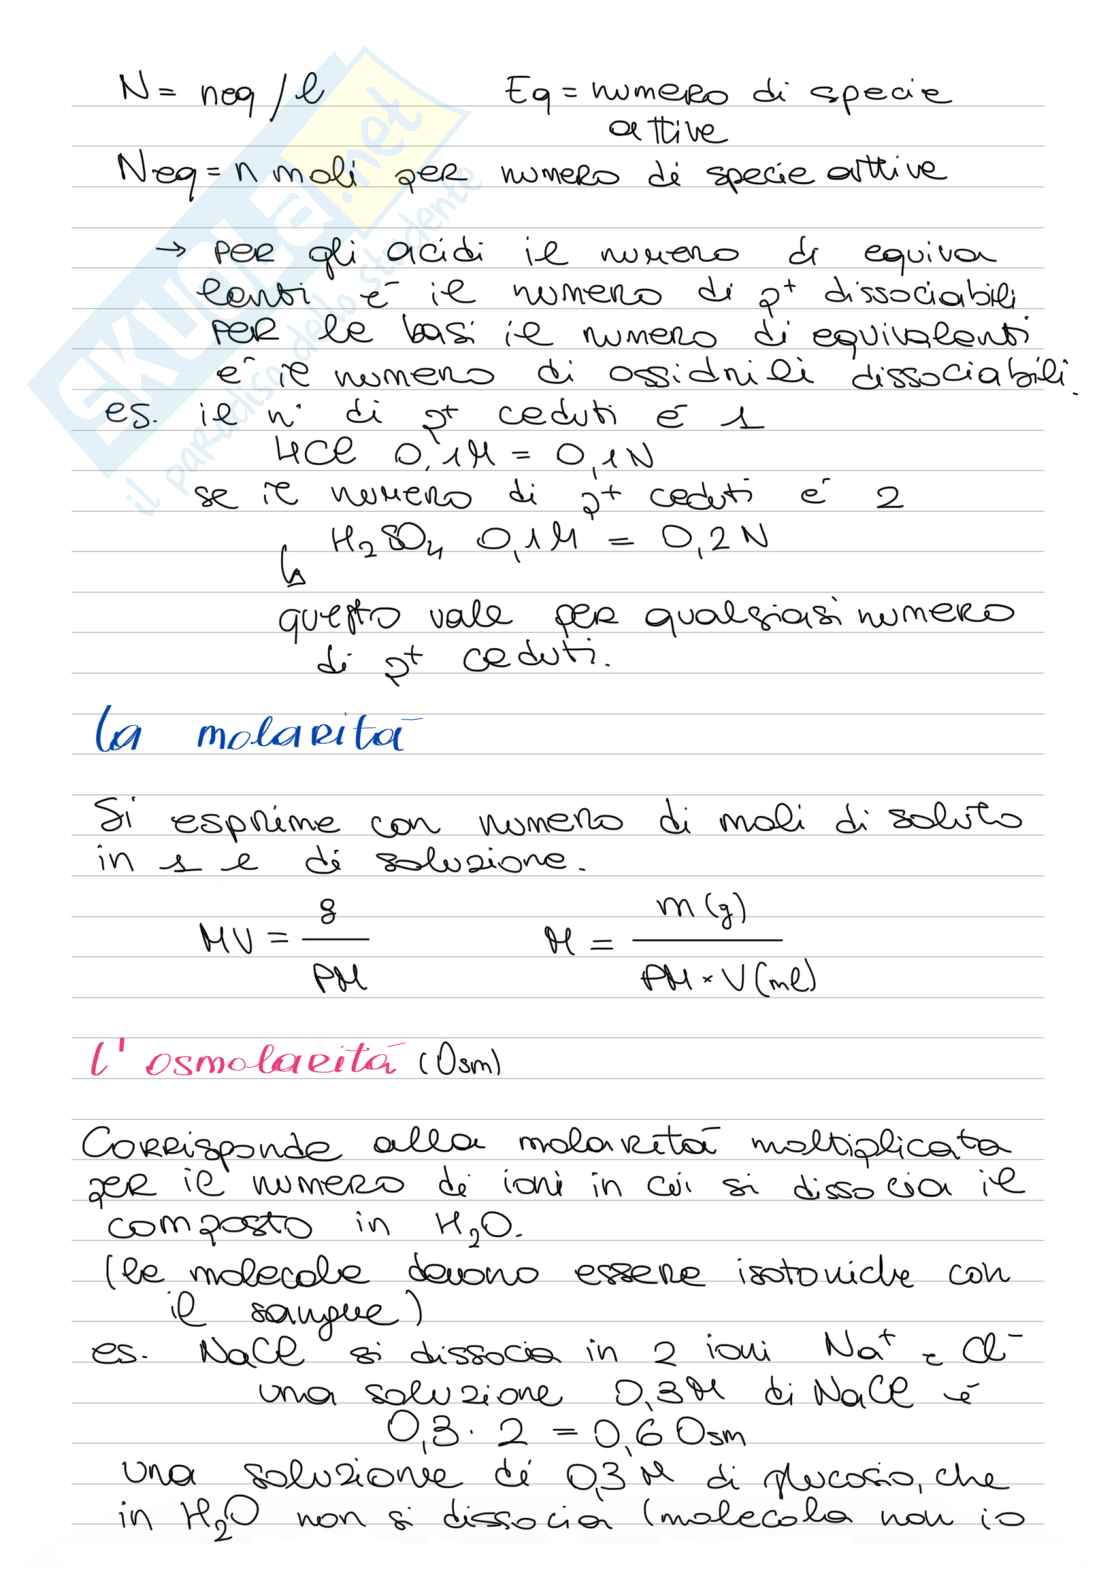 N = neq / l Eq = numero di specie
attive
Neq = n moli per numero di specie attive
→ per gli acidi il numero di equiva
lenti é il numero di p⁺ dissociabili
per le basi il numero di equivalenti
é il numero di ossidrili dissociabili.
es. il n° di p⁺ ceduti é 1
HCl 0,1M = 0,1N
se il numero di p⁺ ceduti é 2
H₂SO₄ 0,1M = 0,2N
↳
questo vale per qualsiasi numero
di p⁺ ceduti.
La molaritá
Si esprime con numero di moli di soluto
in 1 l di soluzione.
MV = g / PM M = m (g) / PM × V (ml)
L'osmolaritá (Osm)
Corrisponde alla molaritá moltiplicata
per il numero di ioni in cui si dissocia il
composto in H₂O.
(le molecole devono essere isotoniche con
il sangue)
es. NaCl si dissocia in 2 ioni Na⁺ e Cl⁻
una soluzione 0,3M di NaCl é
0,3 · 2 = 0,6 Osm
una soluzione di 0,3 M di glucosio, che
in H₂O non si dissocia (molecola non io
SKUOLA.net
il paradiso dello studente